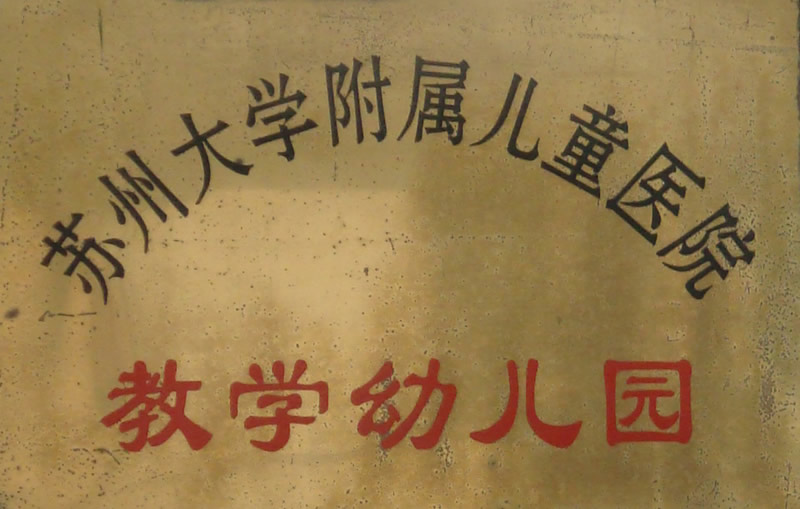 苏州大学附属儿童医院
教学幼儿园